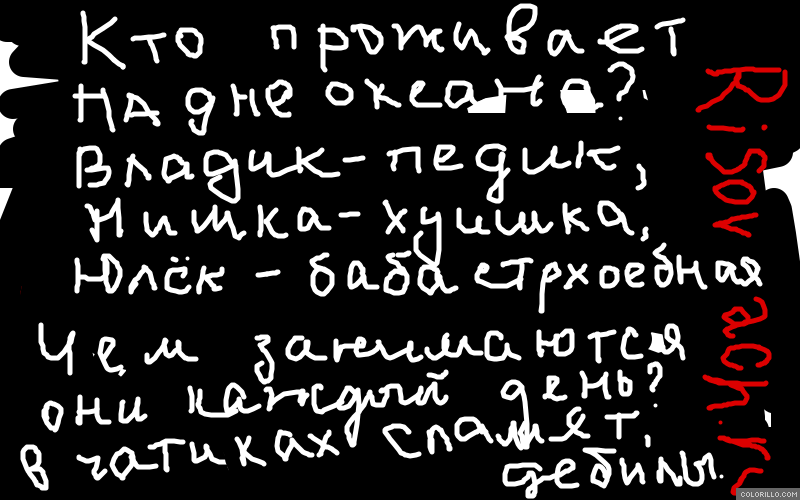 Кто проживает
на дне океана?
Владик-педик,
Нишка-хуишка,
Юлёк - баба страхоебная
Чем занимаются
они каждый день?
в чатиках спамят,
дебилы.
Risovach.ru
COLORILLO.COM